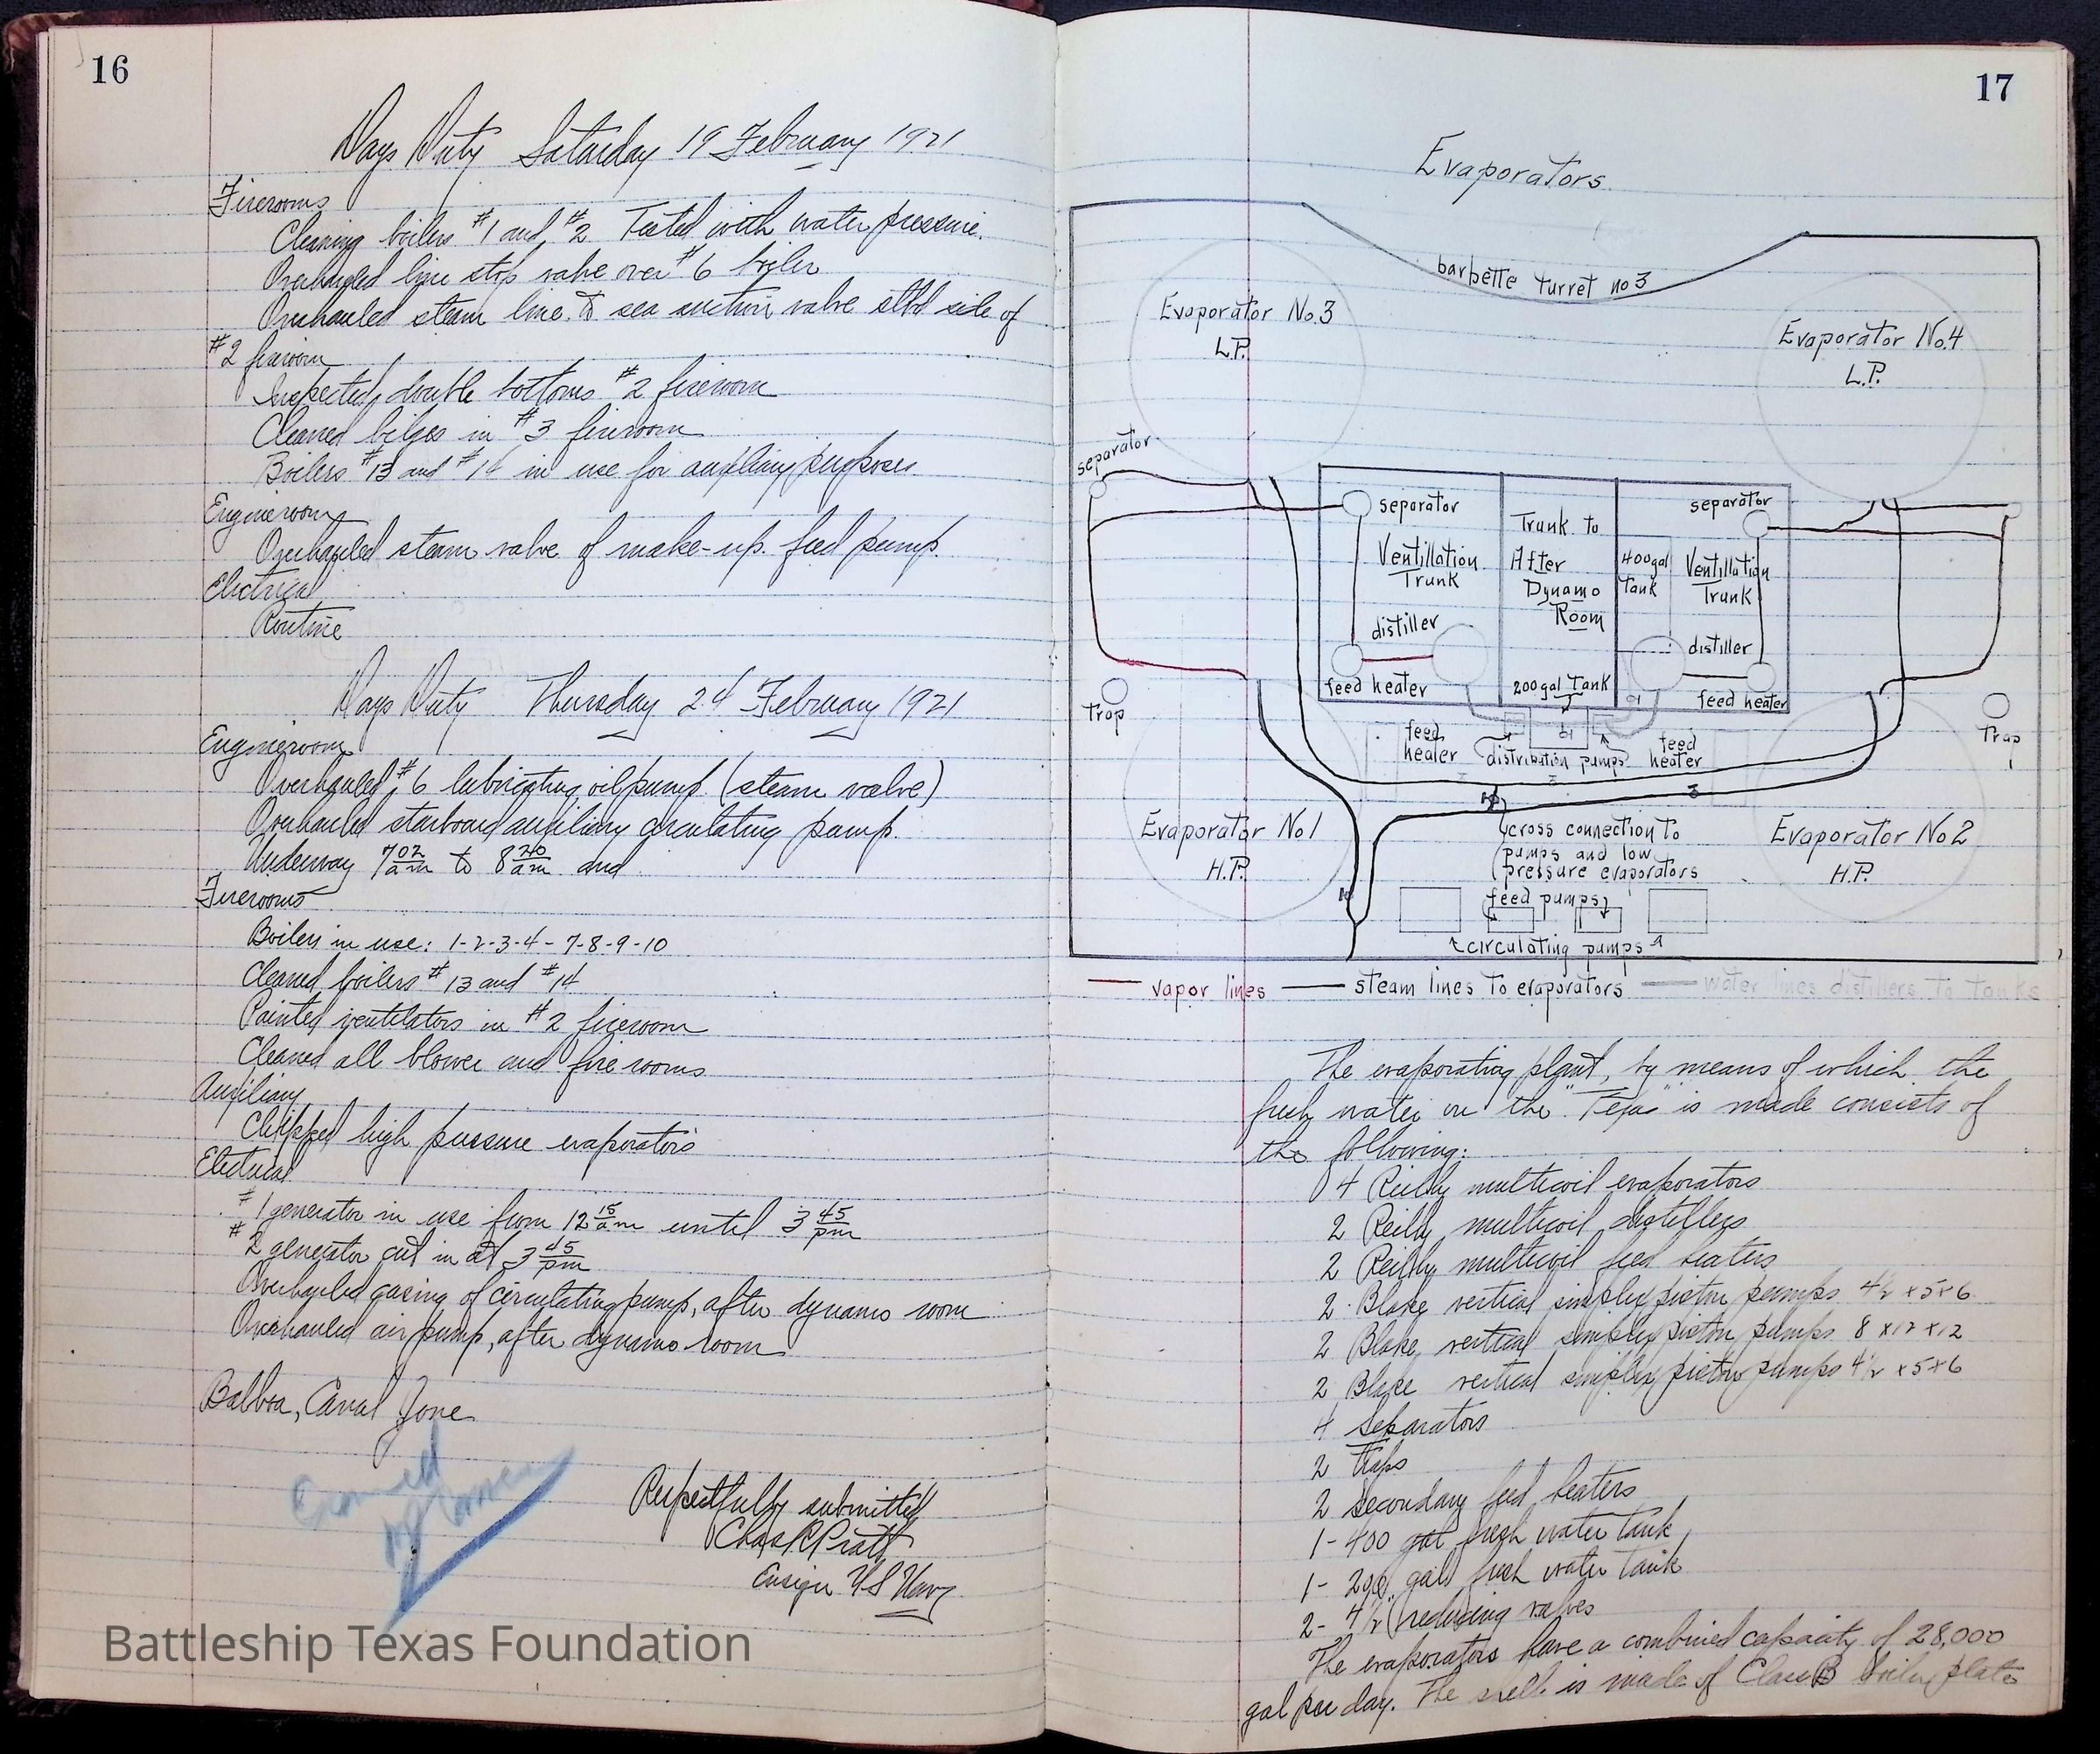 16
Days Duty Saturday 19 February 1921
Firerooms
Cleaning boilers #1 and #2 Tested with water pressure.
Overhauled line stop valve over #6 boiler
Overhauled steam line to sea suction valve stbd side of
#2 fireroom
Inspected double bottoms #2 fireroom
Cleaned bilges in #3 fireroom
Boilers #13 and #14 in use for auxiliary purposes
Engineroom
Overhauled steam valve of make-up feed pump
Electrical
Routine
Days Duty Thursday 24 February 1921
Engineroom
Overhauled #6 lubricating oil pump (steam valve)
Overhauled starboard auxiliary circulating pump.
Underway 7 02 am to 8 20 am and
Firerooms
Boilers in use: 1-2-3-4-7-8-9-10
Cleaned boilers #13 and #14
Painted ventilators in #2 fireroom
Cleaned all blower and fire rooms
Auxiliary
Chipped high pressure evaporators
Electrical
#1 generator in use from 12 15 am until 3 45 pm
#2 generator cut in at 3 45 pm
Overhauled casing of circulating pump, after dynamo room
Overhauled air pump, after dynamo room
Balboa, Canal Zone
Respectfully submitted
Chas R Pratt
Ensign US Navy
Battleship Texas Foundation
17
Evaporators
barbette turret no 3
Evaporator No.3
L.P.
Evaporator No.4
L.P.
separator
separator
separator
Ventillation
Trunk
Trunk to
After
Dynamo
Room
400gal
Tank
Ventillation
Trunk
distiller
distiller
feed heater
200gal Tank
feed heater
Trap
Trap
feed
heater
distribution pumps
feed
heater
Evaporator No1
H.P.
cross connection to
pumps and low
pressure evaporators
Evaporator No2
H.P.
feed pumps
circulating pumps
vapor lines
steam lines to evaporators
water lines distillers to tanks
The evaporating plant, by means of which the
fresh water on the "Texas" is made consists of
the following:
4 Reilly multicoil evaporators
2 Reilly multicoil distillers
2 Reilly multicoil feed heaters
2 Blake vertical simplex piston pumps 4½ x5x6
2 Blake vertical simplex piston pumps 8 x12 x12
2 Blake vertical simplex piston pumps 4½ x5x6
4 separators
2 traps
2 secondary feed heaters
1-400 gal fresh water tank
1- 200 gal fresh water tank
2- 4½" reducing valves
The evaporators have a combined capacity of 28,000
gal per day. The shell is made of Class B boiler plate